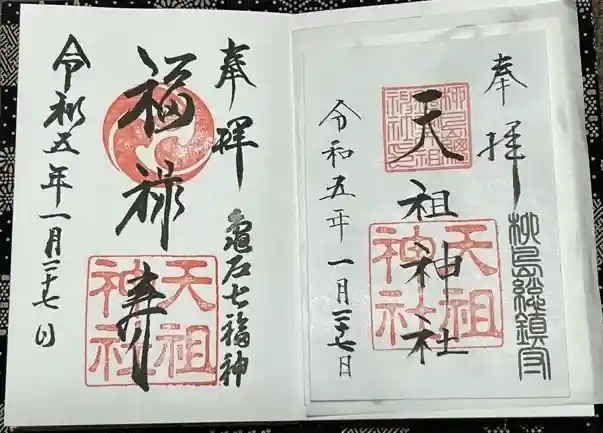 奉拝
天祖神社
令和五年一月二十七日
柳島總鎮守
天祖神社
奉拝
亀石七福神
福禄寿
天祖神社
令和五年一月二十七日